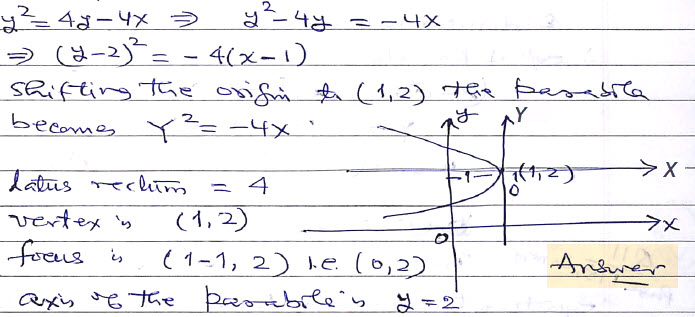 y² = 4y - 4x ⇒ y² - 4y = -4x
⇒ (y-2)² = - 4(x-1)
Shifting the origin to (1,2) the parabola
becomes Y² = -4X.
y Y
1 (1,2) X
0
Latus rectum = 4
vertex is (1,2)
0 x
focus is (1-1, 2) i.e. (0,2)
Answer
axis of the parabola is y = 2